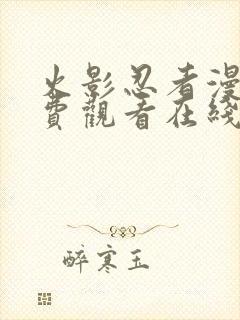 火影忍者漫
費觀看在綫
醉寒玉